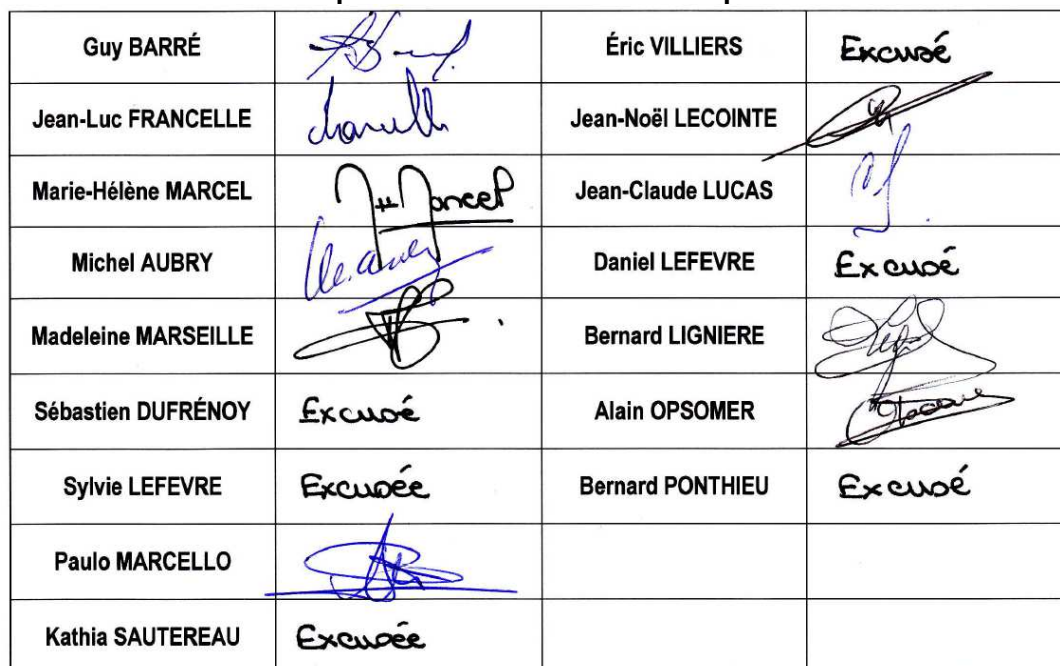 Guy BARRÉ Éric VILLIERS Excusé
Jean-Luc FRANCELLE Jean-Noël LECOINTE
Marie-Hélène MARCEL MH Marcel Jean-Claude LUCAS
Michel AUBRY Daniel LEFEVRE Excusé
Madeleine MARSEILLE Bernard LIGNIERE
Sébastien DUFRÉNOY Excusé Alain OPSOMER
Sylvie LEFEVRE Excusée Bernard PONTHIEU Excusé
Paulo MARCELLO
Kathia SAUTEREAU Excusée